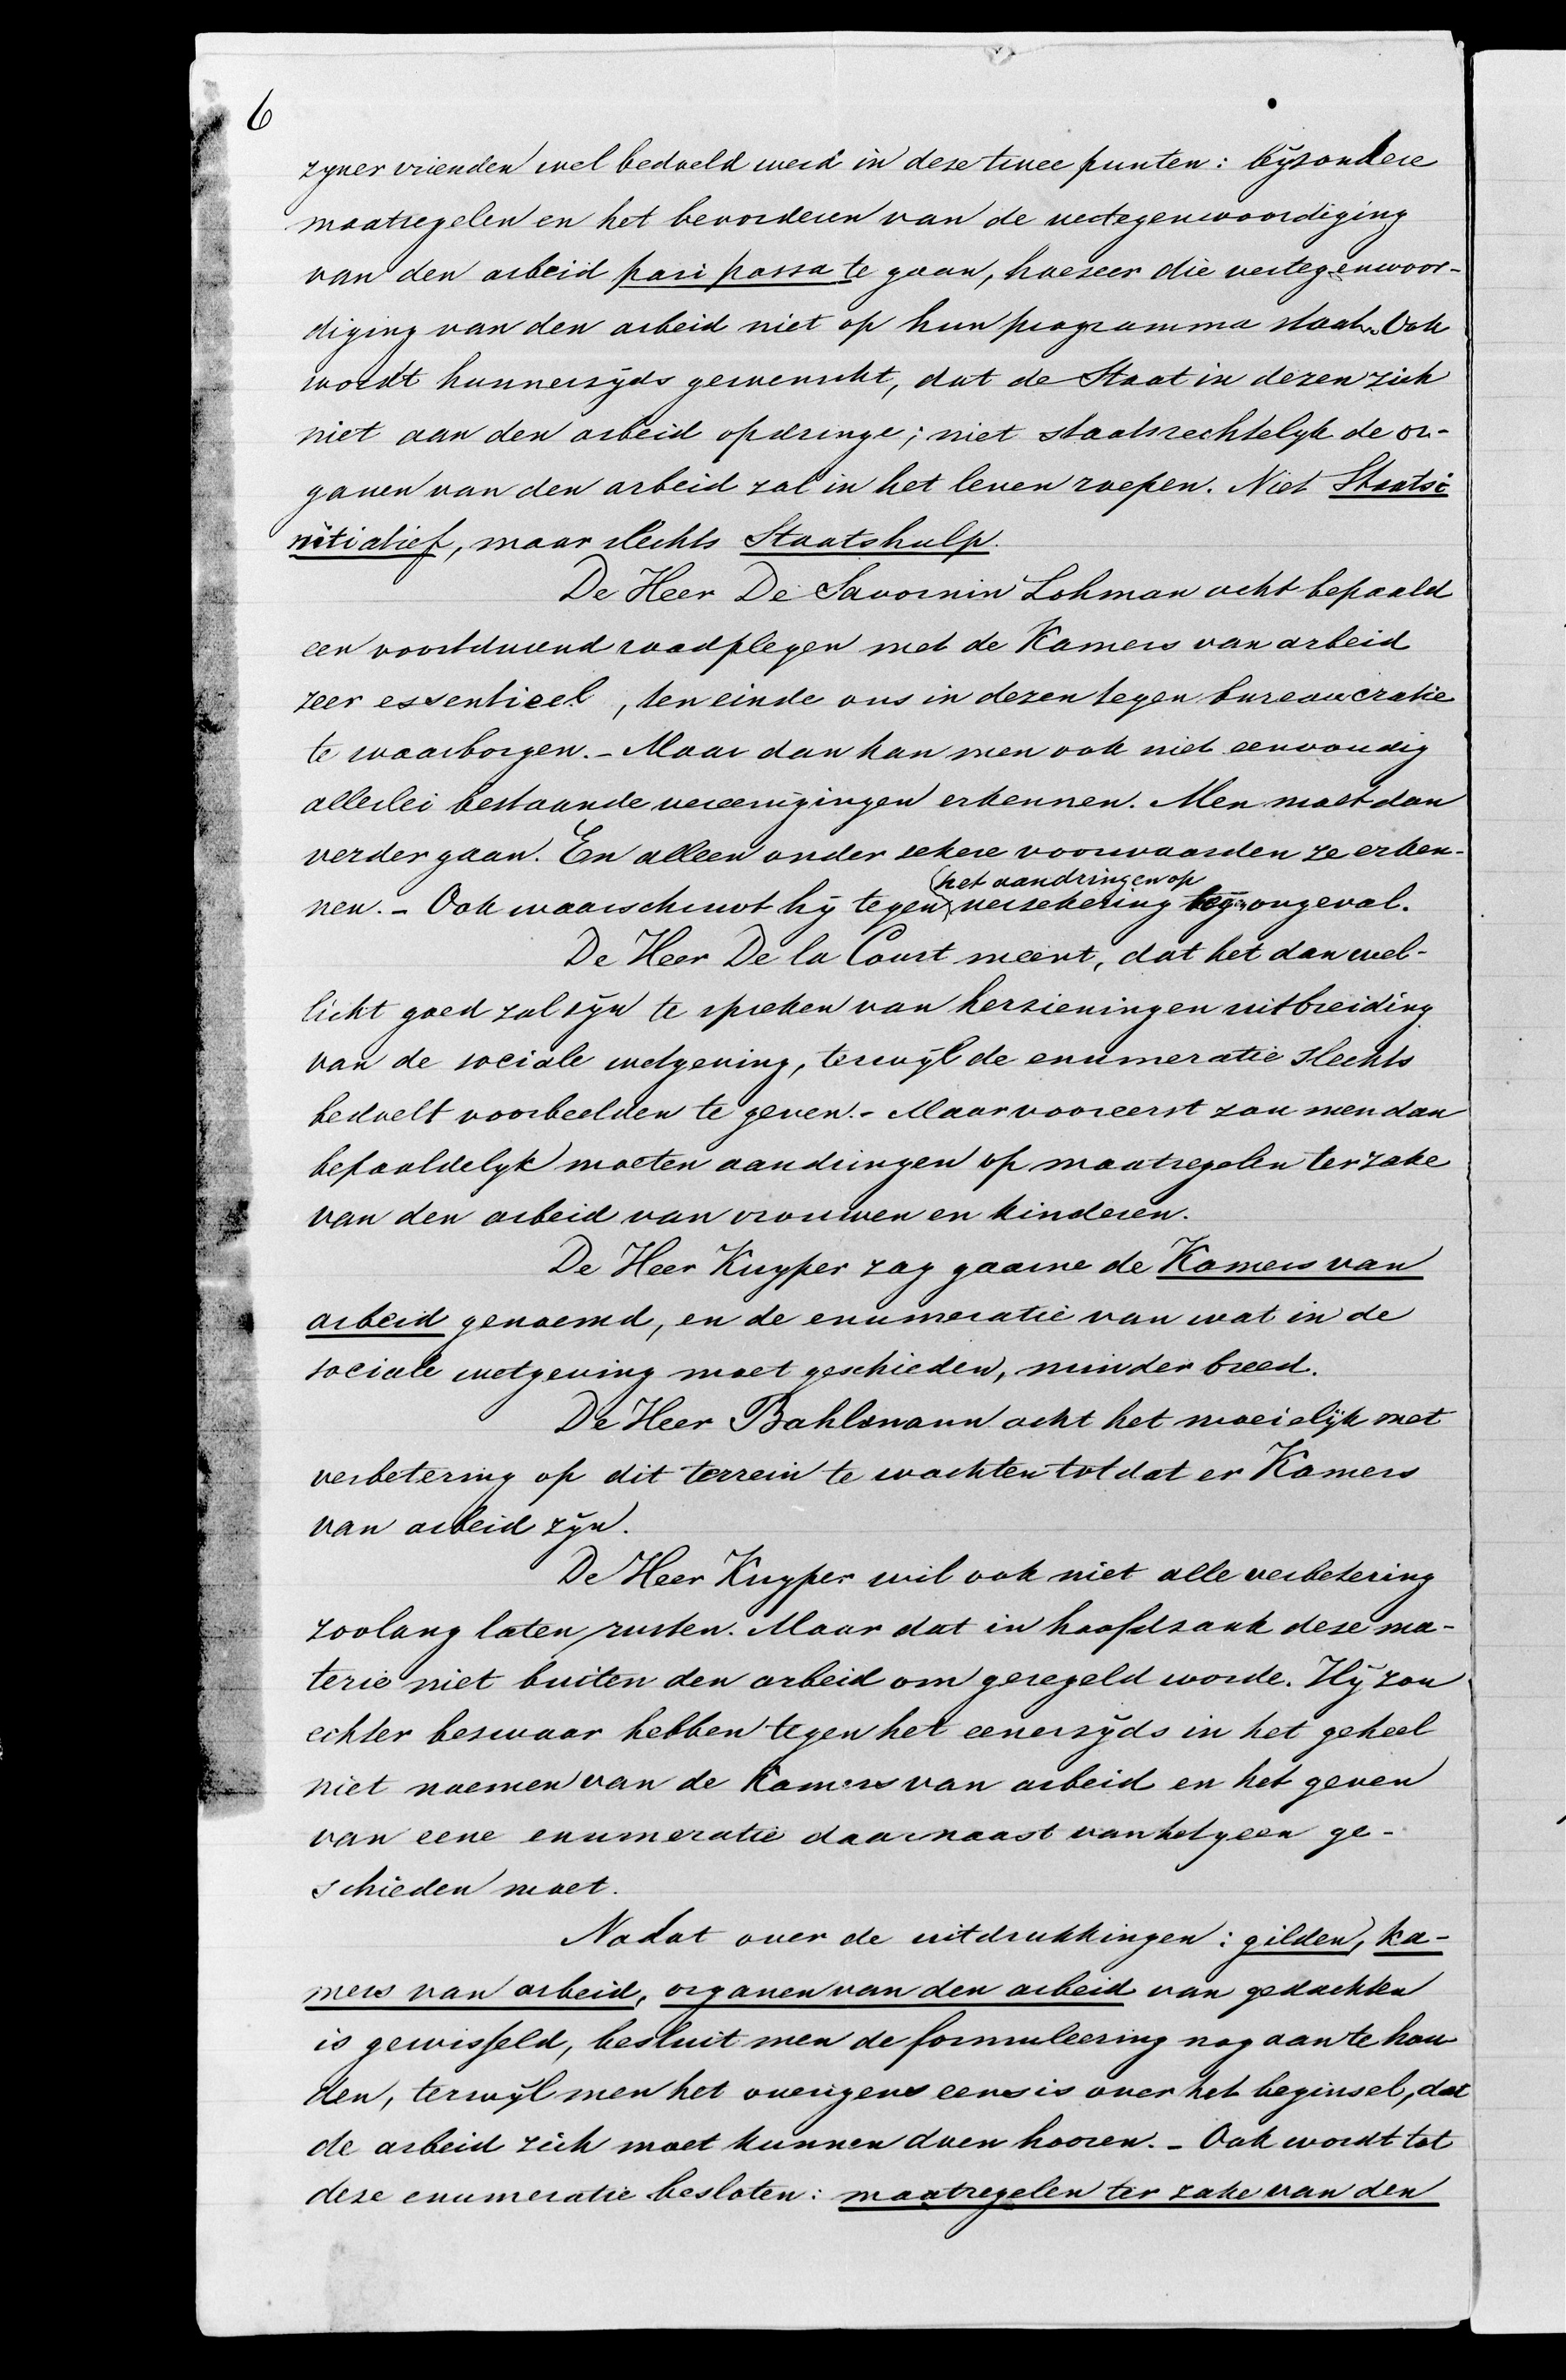 6
zyner vrienden wel bedoeld werd in deze twee punten: byzondere
maatregelen en het bevorderen van de vertegenwoordiging
van den arbeid pari passu te gaan, hoezeer die vertegenwoor-
diging van den arbeid niet op hun programma staat. Ook
wordt hunnerzyds gewenscht, dat de Staat in dezen zich
niet aan den arbeid opdringe; niet staatsrechtelyk de or-
ganen van den arbeid zal in het leven roepen. Niet Staatsi
nitiatief, maar slechts Staatshulp.
De Heer De Savornin Lohman acht bepaald
een voortdurend raadplegen met de Kamers van arbeid
zeer essentieel, ten einde ons in dezen tegen bureaucratie
te waarborgen. - Maar dan kan men ook niet eenvoudig
allerlei bestaande vereenigingen erkennen. Men moet dan
verder gaan. En alleen onder zekere voorwaarden ze erken-
het aandringen op
nen. - Ook waarschuwt hy tegen verzekering by ongeval.
De Heer De la Court meent, dat het dan wel-
licht goed zal zyn te spreken van herziening en uitbreiding
van de sociale wetgeving, terwyl de enumeratie slechts
bedoelt voorbeelden te geven. - Maar vooreerst zou men dan
bepaaldelyk moeten aandringen op maatregelen ter zake
van den arbeid van vrouwen en kinderen.
De Heer Kuyper zag gaarne de Kamers van
arbeid genoemd, en de enumeratie van wat in de
sociale wetgeving moet geschieden, minder breed.
De Heer Bahlmann acht het moeielyk met
verbetering op dit terrein te wachten totdat er Kamers
van arbeid zyn.
De Heer Kuyper wil ook niet alle verbetering
zoolang laten rusten. Maar dat in hoofdzaak deze ma-
terie niet buiten den arbeid om geregeld worde. Hy zou
echter bezwaar hebben tegen het eenerzyds in het geheel
niet noemen van de Kamers van arbeid en het geven
van eene enumeratie daarnaast van hetgeen ge-
schieden moet.
Nadat over de uitdrukkingen: gilden, ka-
mers van arbeid, organen van den arbeid van gedachten
is gewisseld, besluit men de formuleering nog aan te hou
den, terwyl men het overigens eens is over het beginsel, dat
de arbeid zich moet kunnen doen hooren. - Ook wordt tot
deze enumeratie besloten: maatregelen ter zake van den